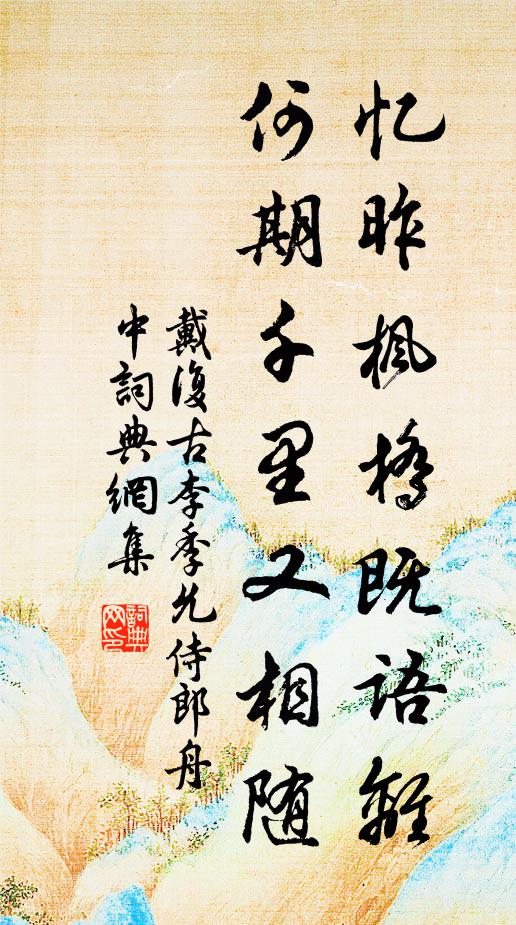 忆昨枫桥既语離
何期千里又相随
戴復古李季允侍郎舟
中詞典網集
詞典
网印